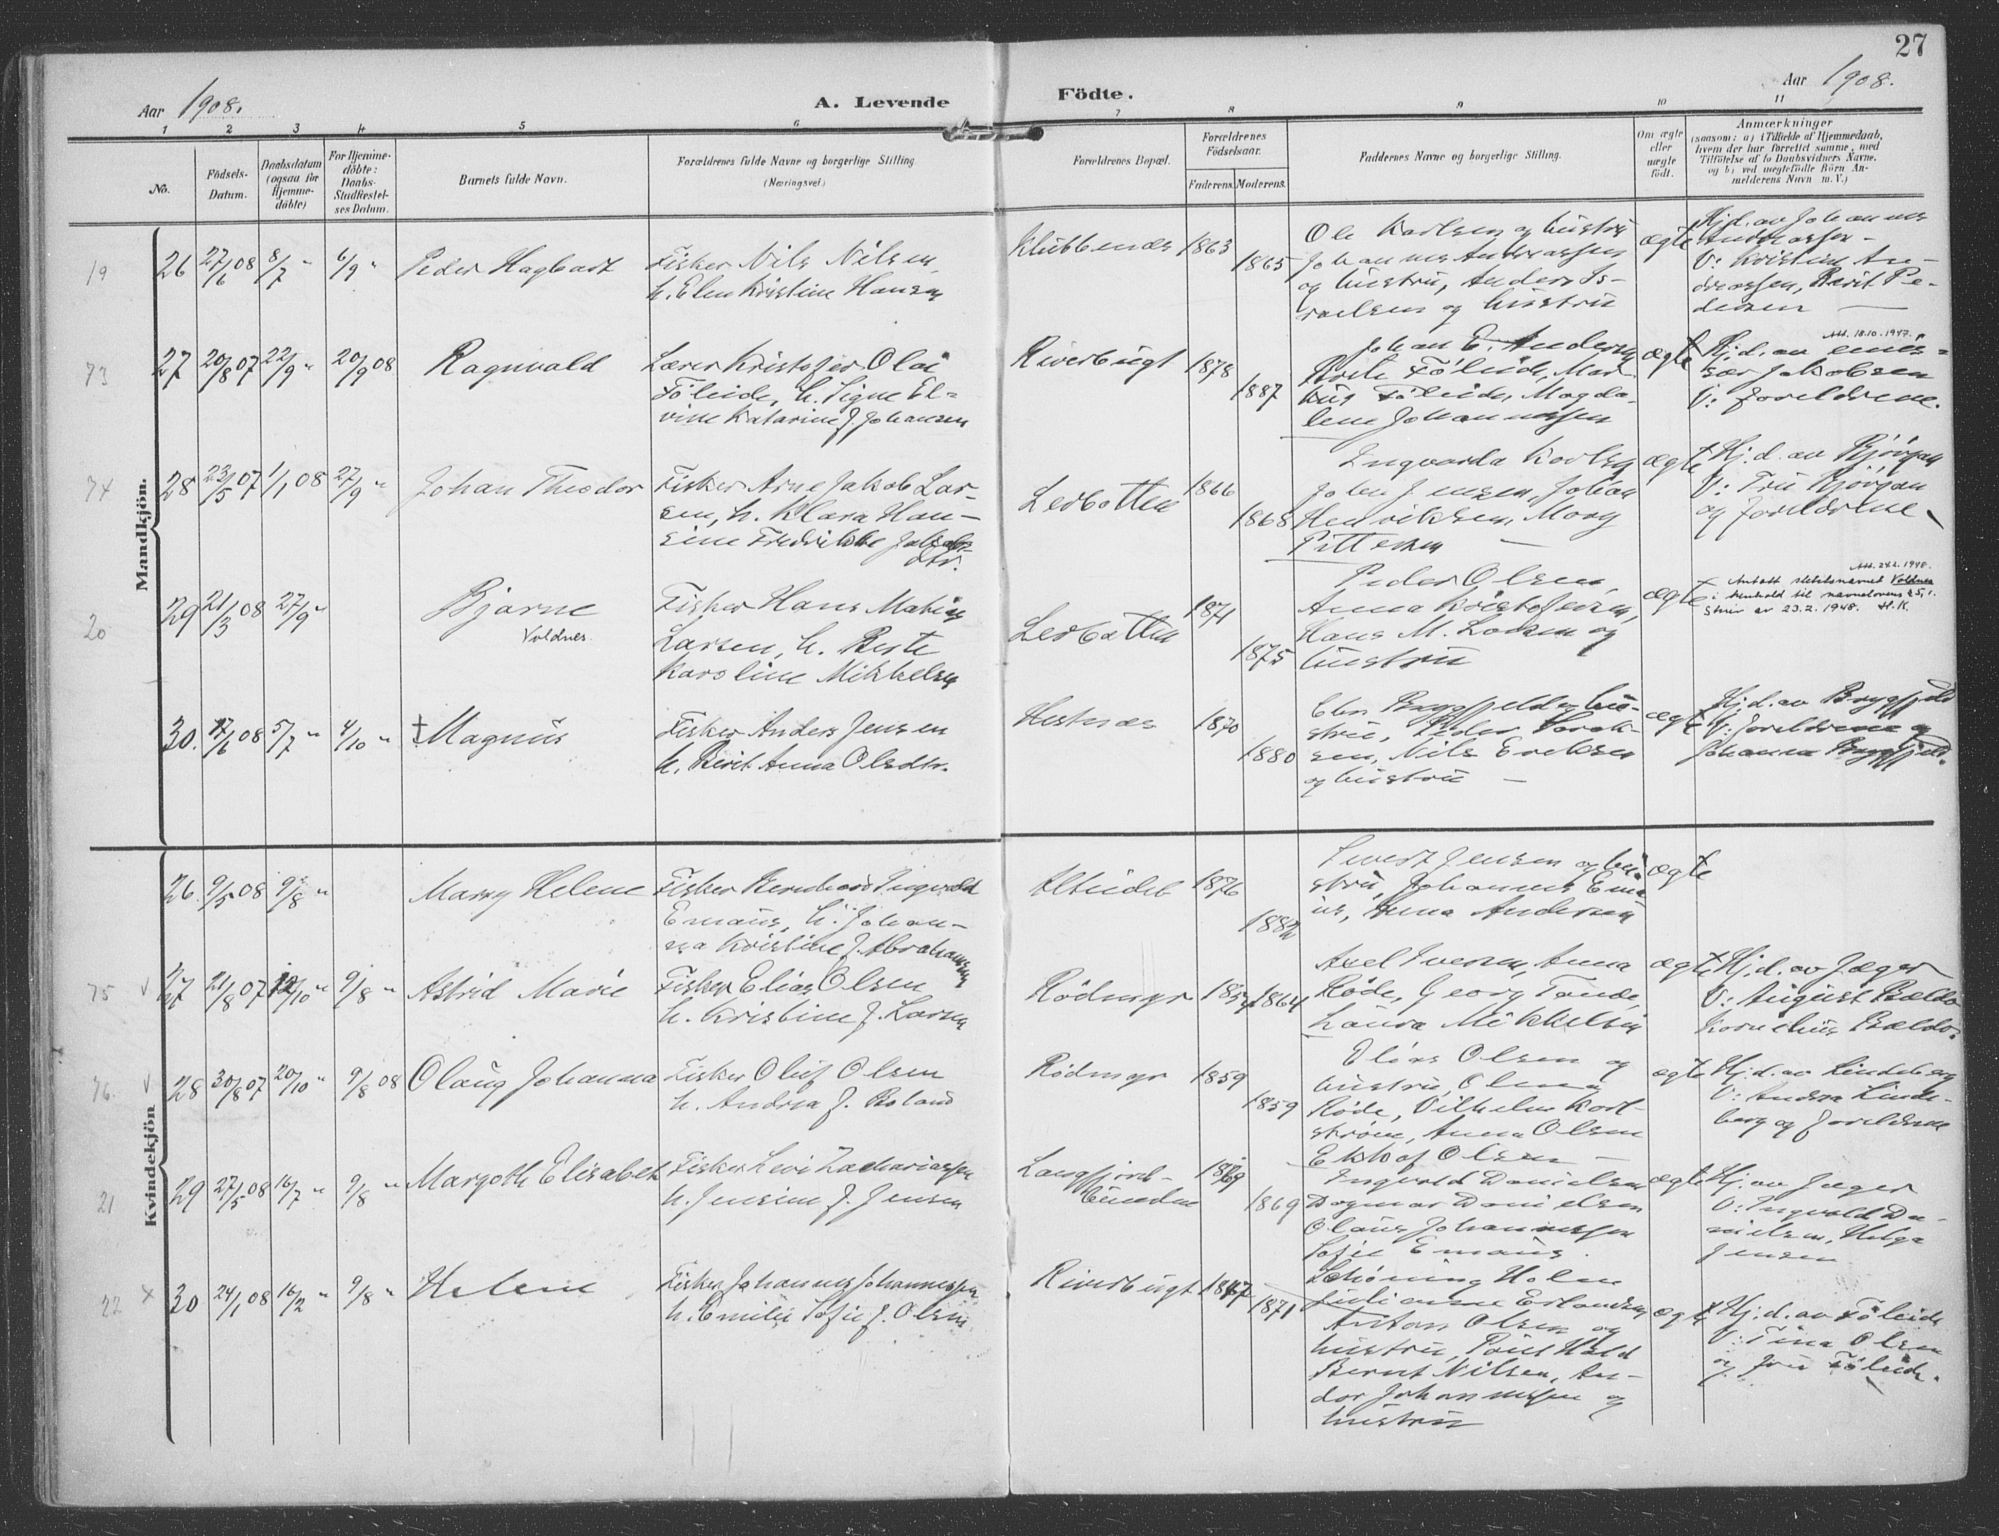 27
Aar 1908.
A. Levende Födte.
Aar 1908.
1 2 3 4 5 6 7 8 9 10 11
No.
Födsels-
Datum.
Daabsdatum
(ogsaa for
Hjemme-
döbte)
For Hjemme-
döbte:
Daabs-
Stadfæstel-
ses Datum.
Barnets fulde Navn.
Forældrenes fulde Navne og borgerlige Stilling.
(Næringsvei)
Forældrenes Bopæl.
Forældrenes
Födselsaar.
Faderens. Moderens.
Faddernes Navne og borgerlige Stilling.
Om ægte
eller
uægte
födt.
Anmærkninger
(saasom: a) i Tilfælde af Hjemmedaab,
hvem der har forrettet samme, med
Tilföielse af to Daabsvidners Navne,
og b) ved uægtefödte Börn An-
melderens Navn m. V.)
Mandkjön.
19 26 27/6 08 8/7 " 6/9 " Peder Hagbart
Fisker Nils Nilsen
h. Elen Kristine Hansen
Klubbenæs 1863 1865
Ole Karlsen og hustru
Johannes Andreassen
og hustru, Anders Is-
raelsen og hustru
ægte
Hj.d. av Johannes
Andreassen -
V: Kristine An-
dreassen, Berit Pe-
dersen
73 27 20/8 07 22/9 " 20/9 08 Ragnvald
Lærer Kristofer Olai
Föleide, h. Signe El-
vine Katarine f. Johansen
Riverbugt 1878 1887
Johan E. Andersen
Föleide, Mar-
kus Föleide, Magda-
lene Johannessen
ægte
Att. 18.10.1947.
Hj.d. av emis-
sær Jakobsen
V: foreldrene.
74 28 23/5 07 1/1 08 27/9 " Johan Theodor
Fisker Arne Jakob Lar-
sen, h. Klara Han-
sine Fredrikke Jakobs-
dtr.
Lerbotten 1866 1868
Ingvarda Karlsen
John Jensen, Johan
Henriksen, Mary
Pettersen
ægte
Hj.d. av Björgan
V: Fru Björgan
og foreldrene
20 29 21/3 08 27/9 " Bjarne
Voldnes.
Fisker Hans Mathias
Larsen, h. Berte
Karoline Mikkelsen
Lerbotten 1871 1875
Peder Olsen,
Anna Kristofersen,
Hans M. Larsen og
hustru
ægte
Att. 24.2.1948.
Antatt slektsnavnet Voldnes
i henhold til navnelovens § 5, 1.
Skriv av 23.2.1948. H.K.
30. 17/6 08 5/7 " 4/10 " † Magnus
Fisker Anders Jensen
h. Berit Anna Olsdtr.
Hestnæs 1870 1880
Ebn Bergfjeld og hu-
stru, Peder Isak-
sen, Nils Eriksen
og hustru
ægte
Hj.d. av Bergfjeld
V: foreldrene og
Johanna Bergfjeld.
Kvindekjön
26. 9/5 08 9/8 " Marry Helene
Fisker Bernhard Ingvald
Emaus, h. Johan-
na Kristine f. Abrahamsen
Alteidet 1876 1882
Sivert Jensen og hu-
stru, Johannes Ema-
us, Anna Andersen
ægte
75 v 27 21/8 07 12/10 " 9/8 " Astrid Marie
Fisker Elias Olsen
h. Kristine f. Larsen
Rödmyr 1864
Axel Iversen, Anna
Röde, Georg Tande,
Laura Mikkelsen
ægte
Hj.d. av Jæger
V: August Bældo
Kornelius Bældo.
76. v 28 30/8 07 20/10 " 9/8 08 Olaug Johanna
Fisker Oluf Olsen
h. Andrea f. Boland
Rödmyr 1859 1859
Elias Olsen og
hustru, Olena
Röde, Vilhelm Karl-
ström, Anna Olsen
Ekkhof Olsen
ægte
Hj.d. av Lindeberg
V: Andrea Linde-
berg og foreldrene
21 29 27/5 08 16/7 " 9/8 " Margoth Elisabet
Fisker Levi Zachariassen
h. Jensine f. Jensen
Langfjord-
bunden 1869 1869
Ingvald Danielsen
Dagmar Danielsen
Olaus Johannessen
Sofie Emaus.
ægte
Hj. av Jæger
V: Ingvald Da-
nielsen, Helga
Jensen
22 x 30 24/1 08 16/2 " 9/8 " Helene
Fisker Johannes Johannessen
h. Emilie Sofie f. Olsen
Riverbugt 1871
Schöning Holm
Julianne Erlandsen
Anton Olsen og
hustru, Paul Hald
Bernt Nilsen, An-
dor Johannessen og
hustru
ægte
Hj.d. av Föleide
V: Tina Olsen
og Fru Föleide.